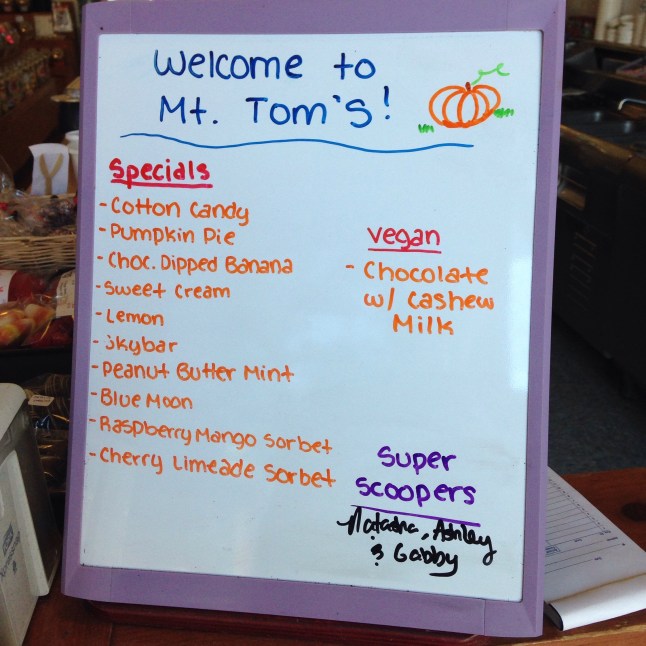 Welcome to
Mt. Tom's!
Specials
- Cotton Candy
- Pumpkin Pie
- Choc. Dipped Banana
- Sweet Cream
- Lemon
- Skybar
- Peanut Butter Mint
- Blue Moon
- Raspberry Mango Sorbet
- Cherry Limeade Sorbet
Vegan
- Chocolate
w/ Cashew
Milk
Super
Scoopers
Natasha, Ashley
& Gabby